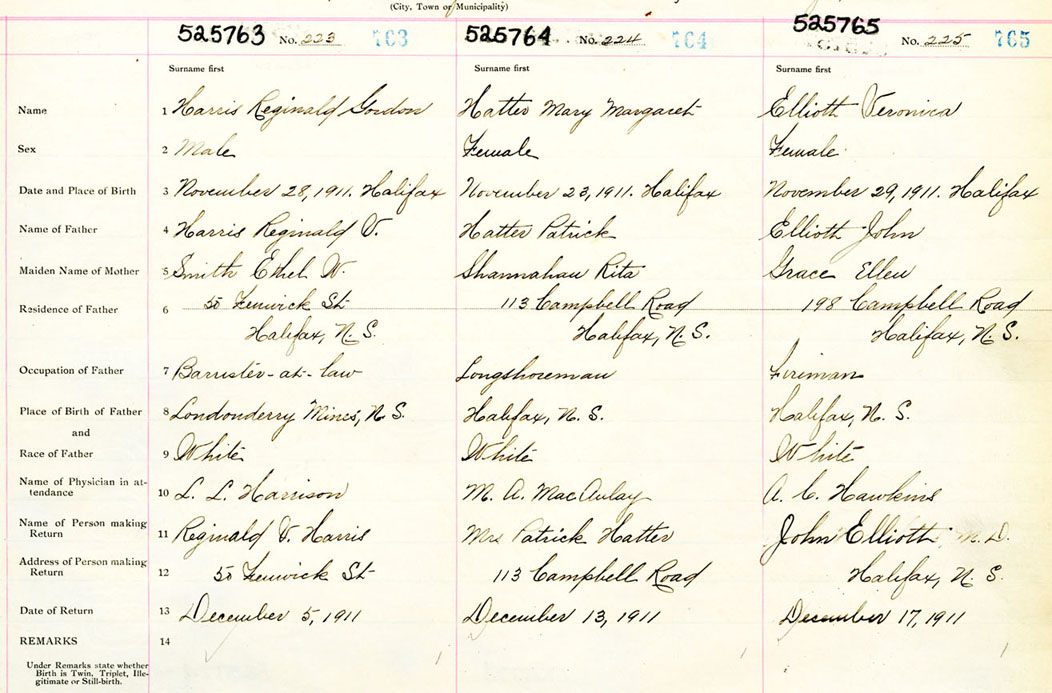 (City, Town or Municipality)
525763 No. 223 763 525764 No. 224 764 525765 No. 225 765
Surname first Surname first Surname first
Name 1 Harris Reginald Gordon Hatter Mary Margaret Elliott Veronica
Sex 2 Male Female Female
Date and Place of Birth 3 November 28, 1911. Halifax November 23, 1911. Halifax November 29, 1911. Halifax
Name of Father 4 Harris Reginald V. Hatter Patrick Elliott John
Maiden Name of Mother 5 Smith Ethel W. Shannahan Rita Grace Ellen
Residence of Father 6 50 Fenwick St 113 Campbell Road 198 Campbell Road
Halifax, N.S. Halifax, N.S. Halifax, N.S.
Occupation of Father 7 Barrister-at-law Longshoreman Fireman
Place of Birth of Father 8 Londonderry Mines, N.S. Halifax, N.S. Halifax, N.S.
and
Race of Father 9 White White White
Name of Physician in at-
tendance 10 L. L. Harrison M. A. MacAulay A. C. Hawkins
Name of Person making
Return 11 Reginald V. Harris Mrs Patrick Hatter John Elliott M.D.
Address of Person making
Return 12 50 Fenwick St 113 Campbell Road Halifax, N.S.
Date of Return 13 December 5, 1911 December 13, 1911 December 17, 1911
REMARKS 14
Under Remarks state whether
Birth is Twin, Triplet, Ille-
gitimate or Still-birth.